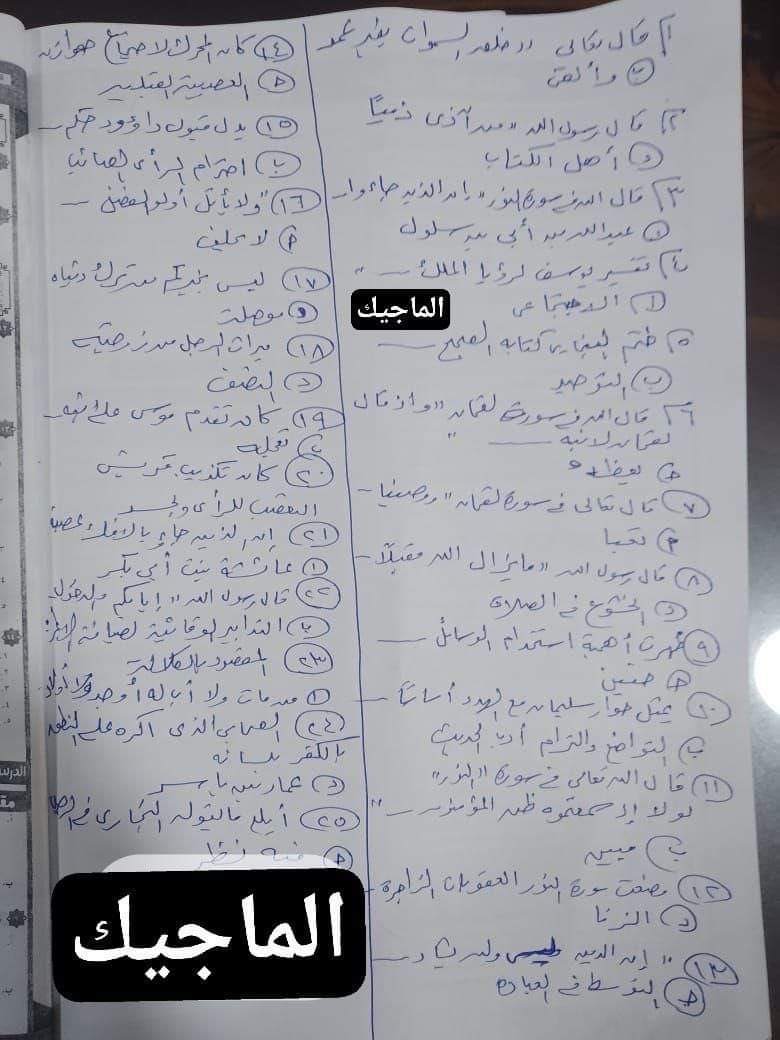 ١ قال تعالى "خلق السموات بغير عمد
ب وألقى
٢ قال رسول الله "من آذى ذميًا
د أهل الكتاب
٣ قال الله في سورة النور "إن الذين جاءوا
عبدالله بن أبي بن سلول
٤ تفسير يوسف لرؤيا الملك ـــ "
أ الاجتماعى
الماجيك
٥ ختم البخارى كتابه الصحيح ـــ
ب التوحيد
٦ قال الله في سورة لقمان "وإذ قال
لقمان لابنه ـــ "
ج يعظه
٧ قال تعالى في سورة لقمان "ووصينا ـ
٨ قال رسول الله "مايزال الله مقبلًا ـ
د الخشوع في الصلاة
٩ ظهرت أهمية استخدام الوسائل ـــ
ج حنين
١٠ يمثل حوار سليمان مع الهدهد أساسًا ـ
ب التواضع والتزام أدب الحديث
١١ قال الله تعالى في سورة "النور"
لولا إذ سمعتموه ظن المؤمنون ـــ "
ب مبين
١٢ وضعت سورة النور العقوبات الزاجرة ـ
د الزنا
١٣ "إن الدين ولن يشاد ـــ
ج التوسط في العبادة
١٤ كان المحرك لاجتماع هوازن
ج العصبية القبلية
١٥ يدل قبول داوود حكم ـــ
ب احترام الرأى الصائب
١٦ "ولا يأتل أولو الفضل ـــ
لا يحلف
١٧ ليس بخيركم من ترك دنياه
موصلة
١٨ ميراث الرجل من زوجته
د النصف
١٩ كان تقدم موسى على قومه
ب تعجله
٢٠ كان تكذيب قريش
التعصب للرأى والحسد
٢١ إن الذين جاءو بالإفك عصبة
أ عائشة بنت أبى بكر
٢٢ قال رسول الله "إياكم والدخول
ب التدابير الوقائية لصيانة
٢٣ المقصود بالكلالة
من مات ولا أب له أو جد ولا أولاد
٢٤ الصحابى الذى اكره على النطق
بالكفر بلسانه
د عمار بن ياسر
٢٥ أبلغ مايقوله البخارى في
ج فيه نظر
الماجيك